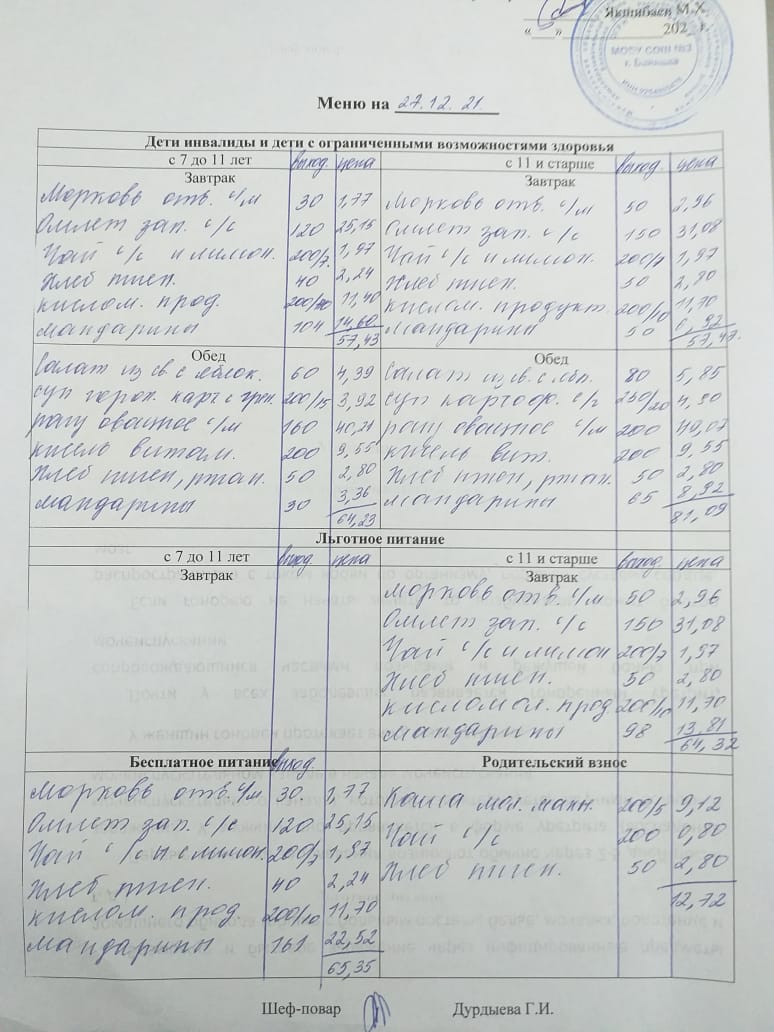 Якшибаев М.Х.
«___»____________202_ г.
МОБУ СОШ №3
Меню на 27.12.21.
Дети инвалиды и дети с ограниченными возможностями здоровья
с 7 до 11 лет выход. цена с 11 и старше выход. цена
Завтрак Завтрак
Морковь отв. с/м 30 1,77 Морковь отв. с/м 50 2,96
Омлет зап. с/с 120 25,15 Омлет зап. с/с 150 31,08
Чай с/с и лимон. 200/7 1,97 Чай с/с и лимон. 200/7 1,97
Хлеб пшен. 40 2,24 Хлеб пшен. 50 2,80
кислом. прод. 200/10 11,40 кислом. продукт. 200/10 11,70
мандарины 104 14,60 мандарины 50 6,92
57,43 57,47.
Обед Обед
Салат из св. с яблок. 60 4,39 Салат из св. с ябл. 80 5,85
суп горох. карт с грен. 200/15 3,92 суп картоф. с/г 250/20 4,90
рагу овощное с/м 160 40,21 рагу овощное с/м 200 49,07
кисель витам. 200 9,55 кисель вит. 200 9,55
Хлеб пшен, ржан. 50 2,80 Хлеб пшен, ржан. 50 2,80
мандарины 30 3,36 мандарины 65 8,92
64,23 81,09
Льготное питание
с 7 до 11 лет выход. цена с 11 и старше выход. цена
Завтрак Завтрак
Морковь отв. с/м 50 2,96
Омлет зап. с/с 150 31,08
Чай с/с и лимон 200/7 1,97
Хлеб пшен. 50 2,80
кисломол. прод 200/10 11,70
мандарины 98 13,81
64,32
Бесплатное питание выход. Родительский взнос
Морковь отв. с/м 30. 1,77 Каша мол. манн. 200/5 9,12
Омлет зап. с/с 120 25,15 Чай с/с 200 0,80
Чай с/с и с лимон. 200/7 1,97 Хлеб пшен. 50 2,80
Хлеб пшен. 40 2,24 12,72
кислом. прод. 200/10 11,70
мандарины 161 22,52
65,35
Шеф-повар Дурдыева Г.И.